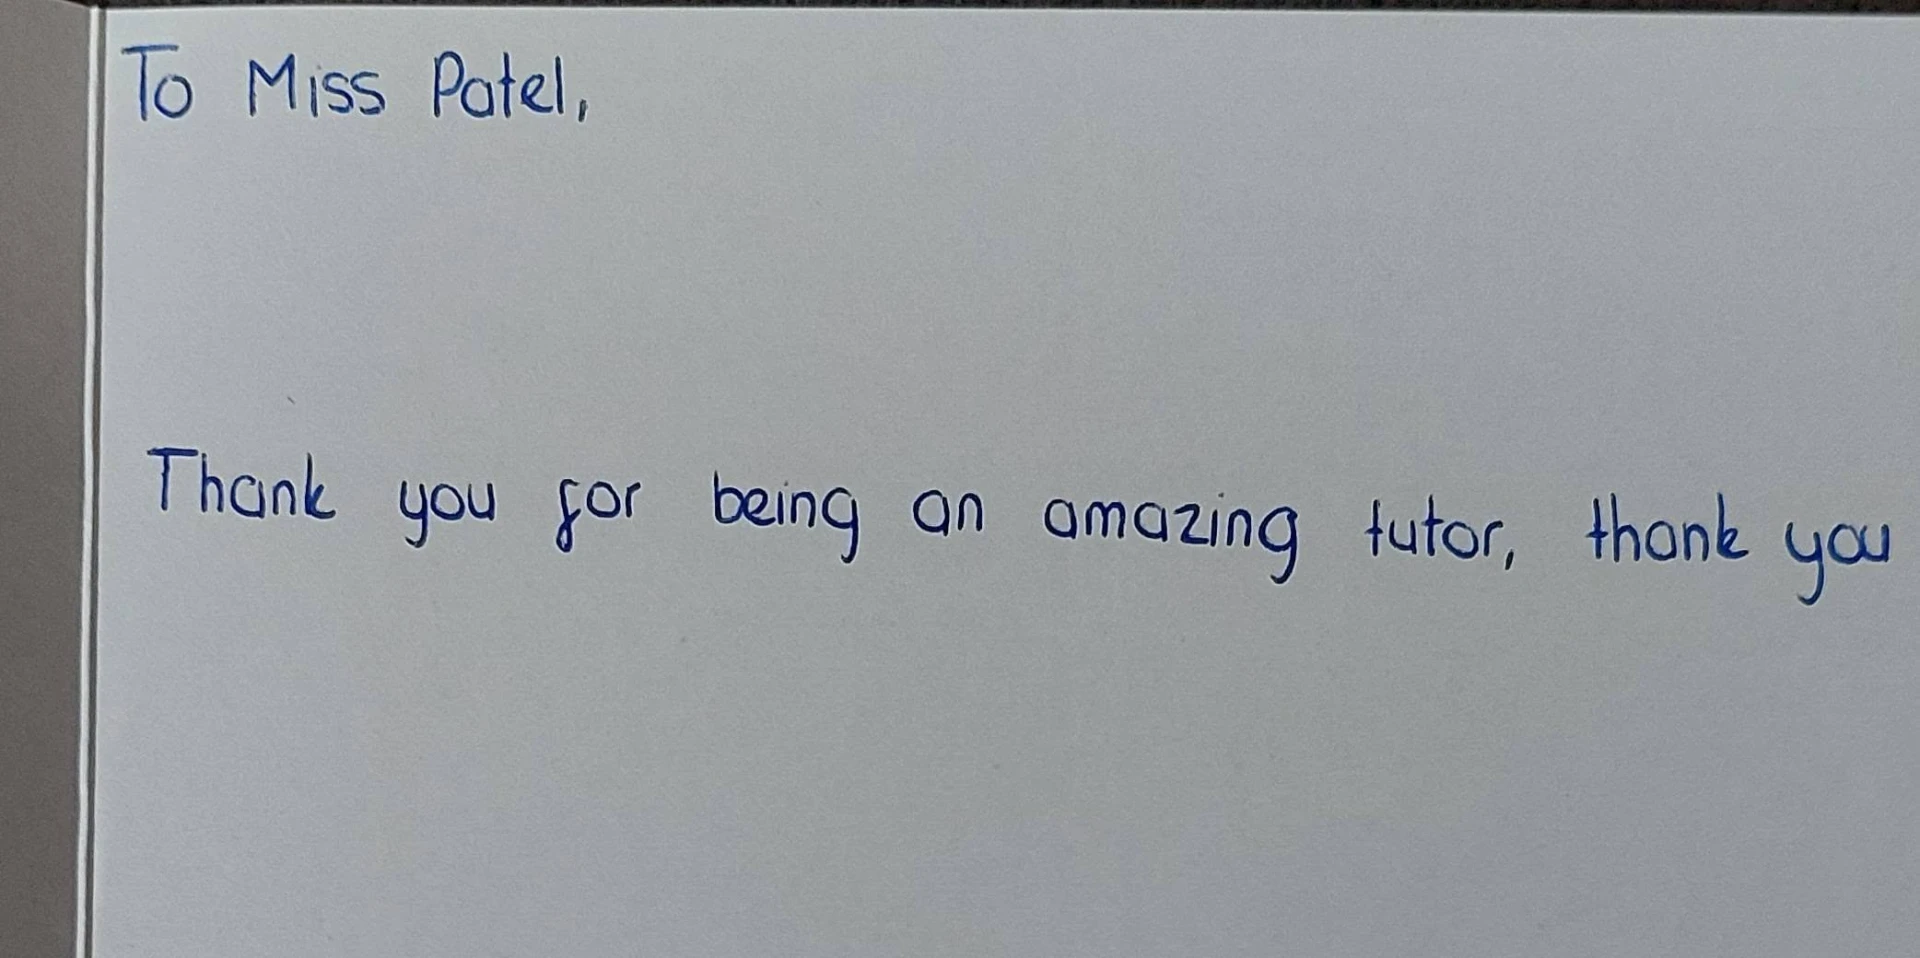 To Miss Patel,
Thank you for being an amazing tutor, thank you